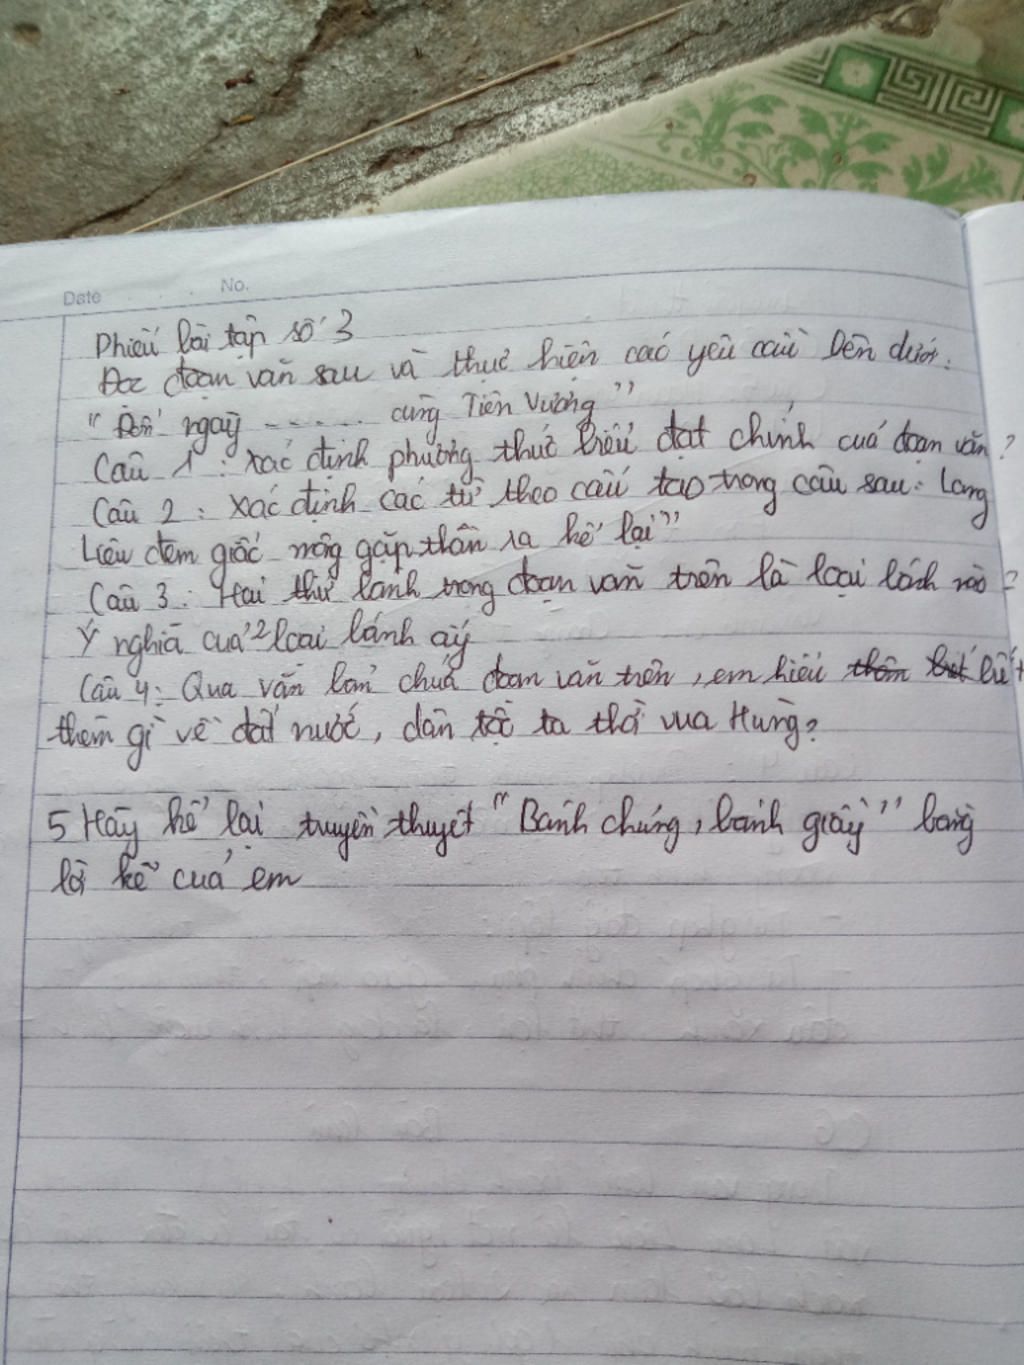 Date No.
Phiếu bài tập số 3
Đọc đoạn văn sau và thực hiện các yêu cầu bên dưới:
"Đến ngày ...... cùng Tiên Vương"
Câu 1: xác định phương thức biểu đạt chính cuả đoạn văn?
Câu 2: xác định các từ theo cấu tạo trong câu sau: Lang
Liêu đem giấc mộng gặp thần ra kể lại"
Câu 3: Hai thứ bánh trong đoạn văn trên là loại bánh nào?
Ý nghiã cuả 2 loại bánh ấy
Câu 4: Qua văn bản chứa đoạn văn trên, em hiểu biết
thêm gì về đất nước, dân tộc ta thời vua Hùng?
5 Hãy kể lại truyền thuyết "Bánh chưng, bánh giầy" bằng
lời kể cuả em